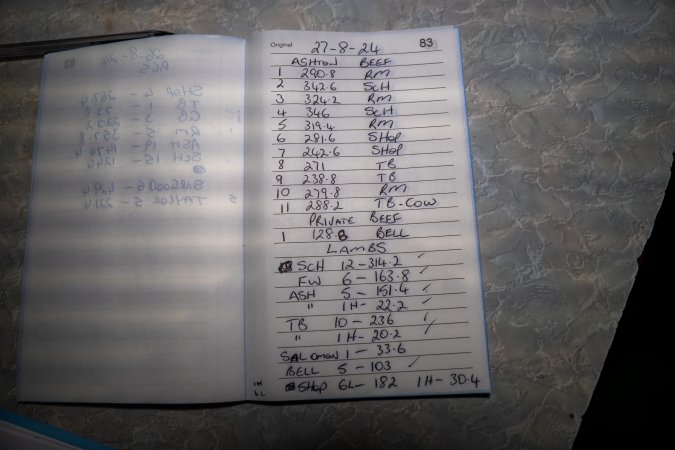 Original 27-8-24 83
ASHTON BEEF
1 290.8 RM
2 342.6 SCH
3 324.2 RM
4 346 SCH
5 319.4 RM
6 281.6 SHOP
7 242.6 SHOP
8 271 TB
9 238.8 TB
10 279.8 RM
11 288.2 TB-COW
PRIVATE BEEF
1 128.8 BELL
LAMBS
SCH 12-314.2 ✓
FW 6-163.8 ✓
ASH 5-151.4 ✓
" 1H-22.2 ✓
TB 10-236 ✓
" 1H-20.2 ✓
SALOMON 1-33.6
BELL 5-103 ✓
SHOP 6L-182 1H-30.4